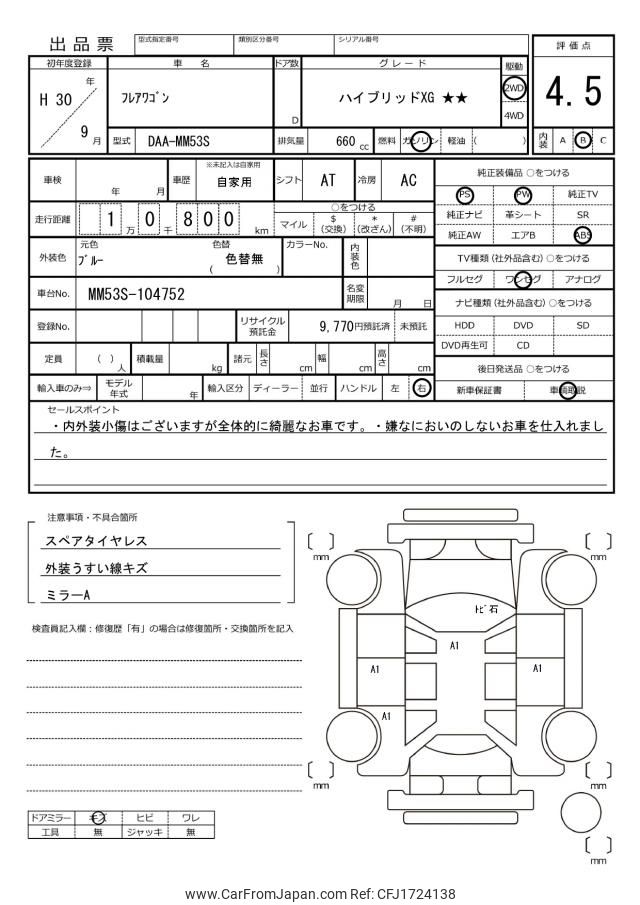 出品票
型式指定番号 類別区分番号 シリアル番号
評価点
4.5
初年度登録 車名 ドア数 グレード 駆動
H 30 年
9 月
フレアワゴン
D
ハイブリッドXG ★★
2WD
4WD
型式 DAA-MM53S 排気量 660 cc 燃料 ガソリン 軽油 ( )
内装 A B C
車検 年 月 車歴 ※未記入は自家用 自家用 シフト AT 冷房 AC
走行距離 1 万 0 千 8 0 0 km
○をつける
マイル $ (交換) * (改ざん) # (不明)
外装色 元色 ブルー 色替 色替無 ( ) カラーNo. 内装色
車台No. MM53S-104752 名変期限 月 日
登録No. リサイクル預託金 9,770円預託済 未預託
定員 ( ) 人 積載量 kg 諸元 長さ cm 幅 cm 高さ cm
輸入車のみ⇒ モデル年式 年 輸入区分 ディーラー 並行 ハンドル 左 右
純正装備品 ○をつける
PS PW 純正TV
純正ナビ 革シート SR
純正AW エアB ABS
TV種類 (社外品含む) ○をつける
フルセグ ワンセグ アナログ
ナビ種類 (社外品含む) ○をつける
HDD DVD SD
DVD再生可 CD
後日発送品 ○をつける
新車保証書 車輌取説
セールスポイント
・内外装小傷はございますが全体的に綺麗なお車です。・嫌なにおいのしないお車を仕入れまし
た。
注意事項・不具合箇所
スペアタイヤレス
外装うすい線キズ
ミラーA
検査員記入欄：修復歴「有」の場合は修復箇所・交換箇所を記入
mm
mm
トビ石
A1
A1
A1
A1
mm
mm
mm
ドアミラー キズ ヒビ ワレ
工具 無 ジャッキ 無
www.CarFromJapan.com Ref: CFJ1724138